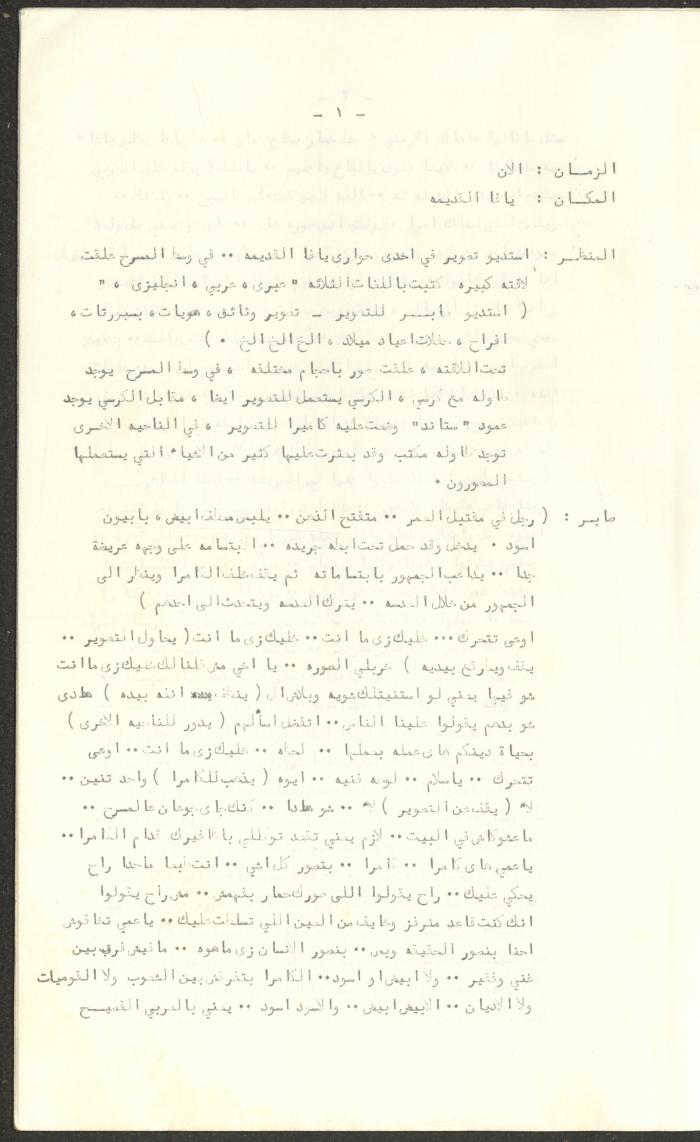 - ١ -
الزمـان : الان
المكـان : يافا القديمه
المنظـر : استديو تصوير في احدى حوارى يافا القديمه •• في وسط المسرح علقت
لافته كبيره كتبت باللغات الثلاثه " عبرى ، عربي ، انجليزى ، "
( استديو صابـــر للتصوير - تصوير وثائق ، هويات ، بسبورتات ،
افراح ، حفلات اعياد ميلاد ، الخ الخ الخ • )
تحت اللافته ، علقت صور باحجام مختلفه ، في وسط المسرح يوجد
طاوله مع كرسي ، الكرسي يستعمل للتصوير ايضا ، مقابل الكرسي يوجد
عمود " ستاند" وضعت عليه كاميرا للتصوير ، في الناحيه الاخرى
توجد طاوله مكتب وقد بعثرت عليها كثير من الاشياء التي يستعملها
المصورون •
صابـر : ( رجل في مقتبل العمر •• متفتح الذهن •• يلبس معطف ابيض ، بابيون
اسود • يدخل وقد حمل تحت ابطه جريده •• البتسامه على وجهه عريضة
جدا •• يداعب الجمهور بابتساماته ثم يقف خلف الكامرا وينظر الى
الجمهور من خلال العدسه •• يترك العدسه ويتحدث الى احدهم )
اوعى تتحرك ••• خليك زى ما انت •• خليك زى ما انت ( يحاول التصوير ••
يقف ويلرقع بيديه ) خربلي الصوره •• يا اخي مش قلنالك خليك زى ماانت
شو فيها يعني لو استنيتلك شويه وبلاش ال ( ينظف انفه بيده ) هادى
شو بدهم يقولوا علينا الناس •• اتفضل اسألهم ( يدور للناحيه الاخرى )
بحياة دينكم هاى عمله بعملها •• لحظه •• خليك زى ما انت •• اوعى
تتحرك •• ياسلام •• لوحه فنيه •• ايوه ( يذهب للكامرا ) واحد تنين ••
لاء ( يقف عن التصوير ) لاء •• شو هادا •• كنك جاى جوعان عالمسرح ••
ماعشوكاش في البيت •• لازم يعني تقعد توكللي باظافيرك قدام الكامرا ••
ياعمي هاى كامرا •• كامرا •• بتصور كل اشي •• انت طبعا ماحدا راح
يحكي عليك •• راح يقولوا اللى صورك حمار بفهمش •• مش راح يقولوا
انك كنت قاعد منرفز وخايف من العين اللي تسلطت عليك •• ياعمي تخافوش
احنا بنصور الحقيقه وبس •• بنصور الانسان زى ماهوه •• مافيش فرق بين
غني وفقير •• ولا ابيض او اسود •• الكامرا بتفرقش بين الشعوب ولا القوميات
ولا الاديان •• الابيض ابيض •• والاسود اسود •• يعني بالعربي الفصيـح